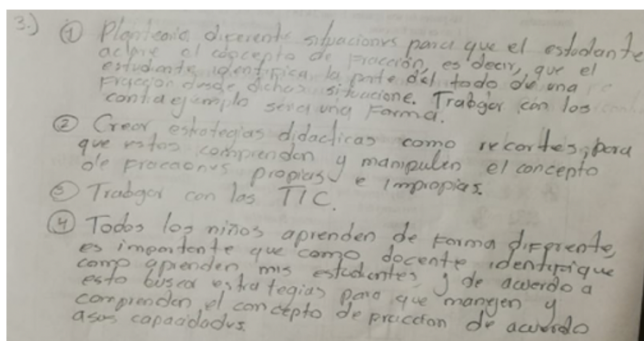 3.) ① Plantearia diferente situaciones para que el estudiante
aclare el concepto de fracción, es decir, que el
estudiante identifica la parte del todo de una
fracción desde dichas situacione. Trabajar con los
contraejemplo sería una forma.
② Crear estrategias didacticas como recortes, para
que estos comprendan y manipulen el concepto
de fracciones propias e impropias.
③ Trabajar con las TIC.
④ Todos los niños aprenden de forma diferente,
es importante que como docente identifique
como aprenden mis estudiantes y de acuerdo a
esto buscar estrategias para que manejen y
comprendan el concepto de fraccion de acuerdo
a sus capacidades.